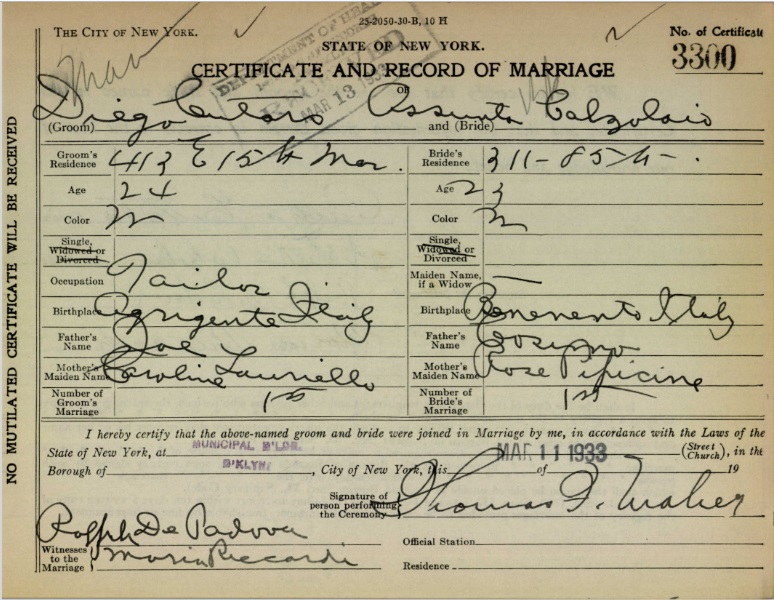 25-2050-30-B, 10 H
THE CITY OF NEW YORK.
No. of Certificate
STATE OF NEW YORK.
3300
CERTIFICATE AND RECORD OF MARRIAGE
OF
DEPARTMENT OF HEALTH
RECEIVED
MAR 13 1933
Diego Cutaro Assunta Calzolaio
(Groom) and (Bride)
Groom's Residence 413 E 15th Man.
Bride's Residence 311-85th-.
Age 24
Age 23
Color W
Color W
Single, Widowed or Divorced
Single, Widowed or Divorced
Occupation Tailor
Maiden Name, if a Widow —
Birthplace Agrigento Italy
Birthplace Benevento Italy
Father's Name Joe
Father's Name Cosimo
Mother's Maiden Name Caroline Lauriello
Mother's Maiden Name Rose Pipicine
Number of Groom's Marriage 1st
Number of Bride's Marriage 1st
I hereby certify that the above-named groom and bride were joined in Marriage by me, in accordance with the Laws of the
State of New York, at MUNICIPAL B'LDG. MAR 11 1933 (Street Church), in the
Borough of B'KLYN, City of New York, this of 19
Signature of person performing the Ceremony Thomas F. Maher
Ralph De Padova
Official Station
Witnesses to the Marriage Maria Riccardi
Residence
NO MUTILATED CERTIFICATE WILL BE RECEIVED